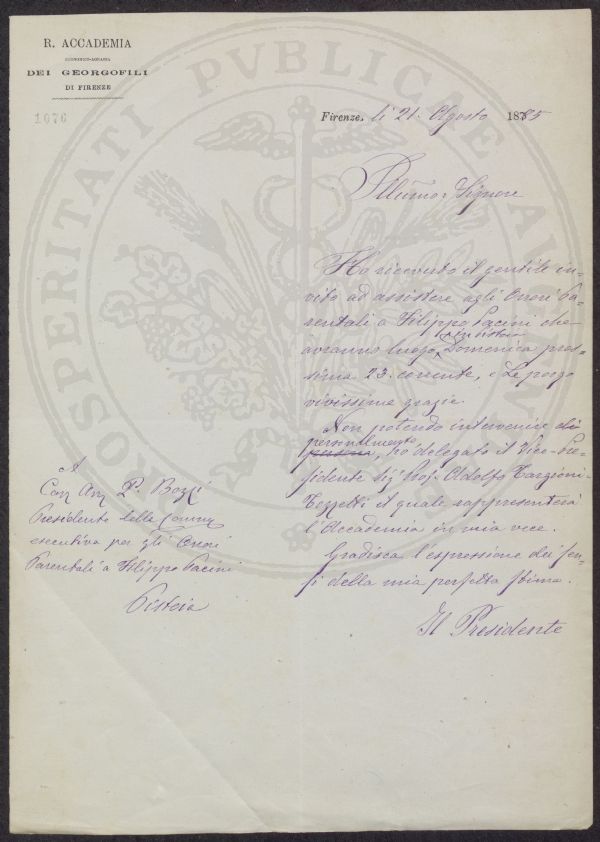 R. ACCADEMIA
ECONOMICO-AGRARIA
DEI GEORGOFILI
DI FIRENZE
1076
PROSPERITATI PVBLICAE AVGENDAE
Firenze, li 21. Agosto 1885
Illumo. Signore
Ho ricevuto il gentile in-
vito ad assistere agli Onori Pa-
rentali a Filippo Pacini che
avranno luogo costì in Pistoia Domenica pros-
sima 23. corrente, e Le porgo
vivissime grazie.
Non potendo intervenire di
persona personalmente, ho delegato il Vice-Pre-
sidente Sig. Prof. Adolfo Targioni-
Tozzetti il quale rappresenterà
l'Accademia in mia vece.
Gradisca l'espressione dei sen-
si della mia perfetta stima.
Il Presidente
A
Cav. P. Bozzi
Presidente della Comms
esecutiva per gli Onori
Parentali a Filippo Pacini
Pistoia